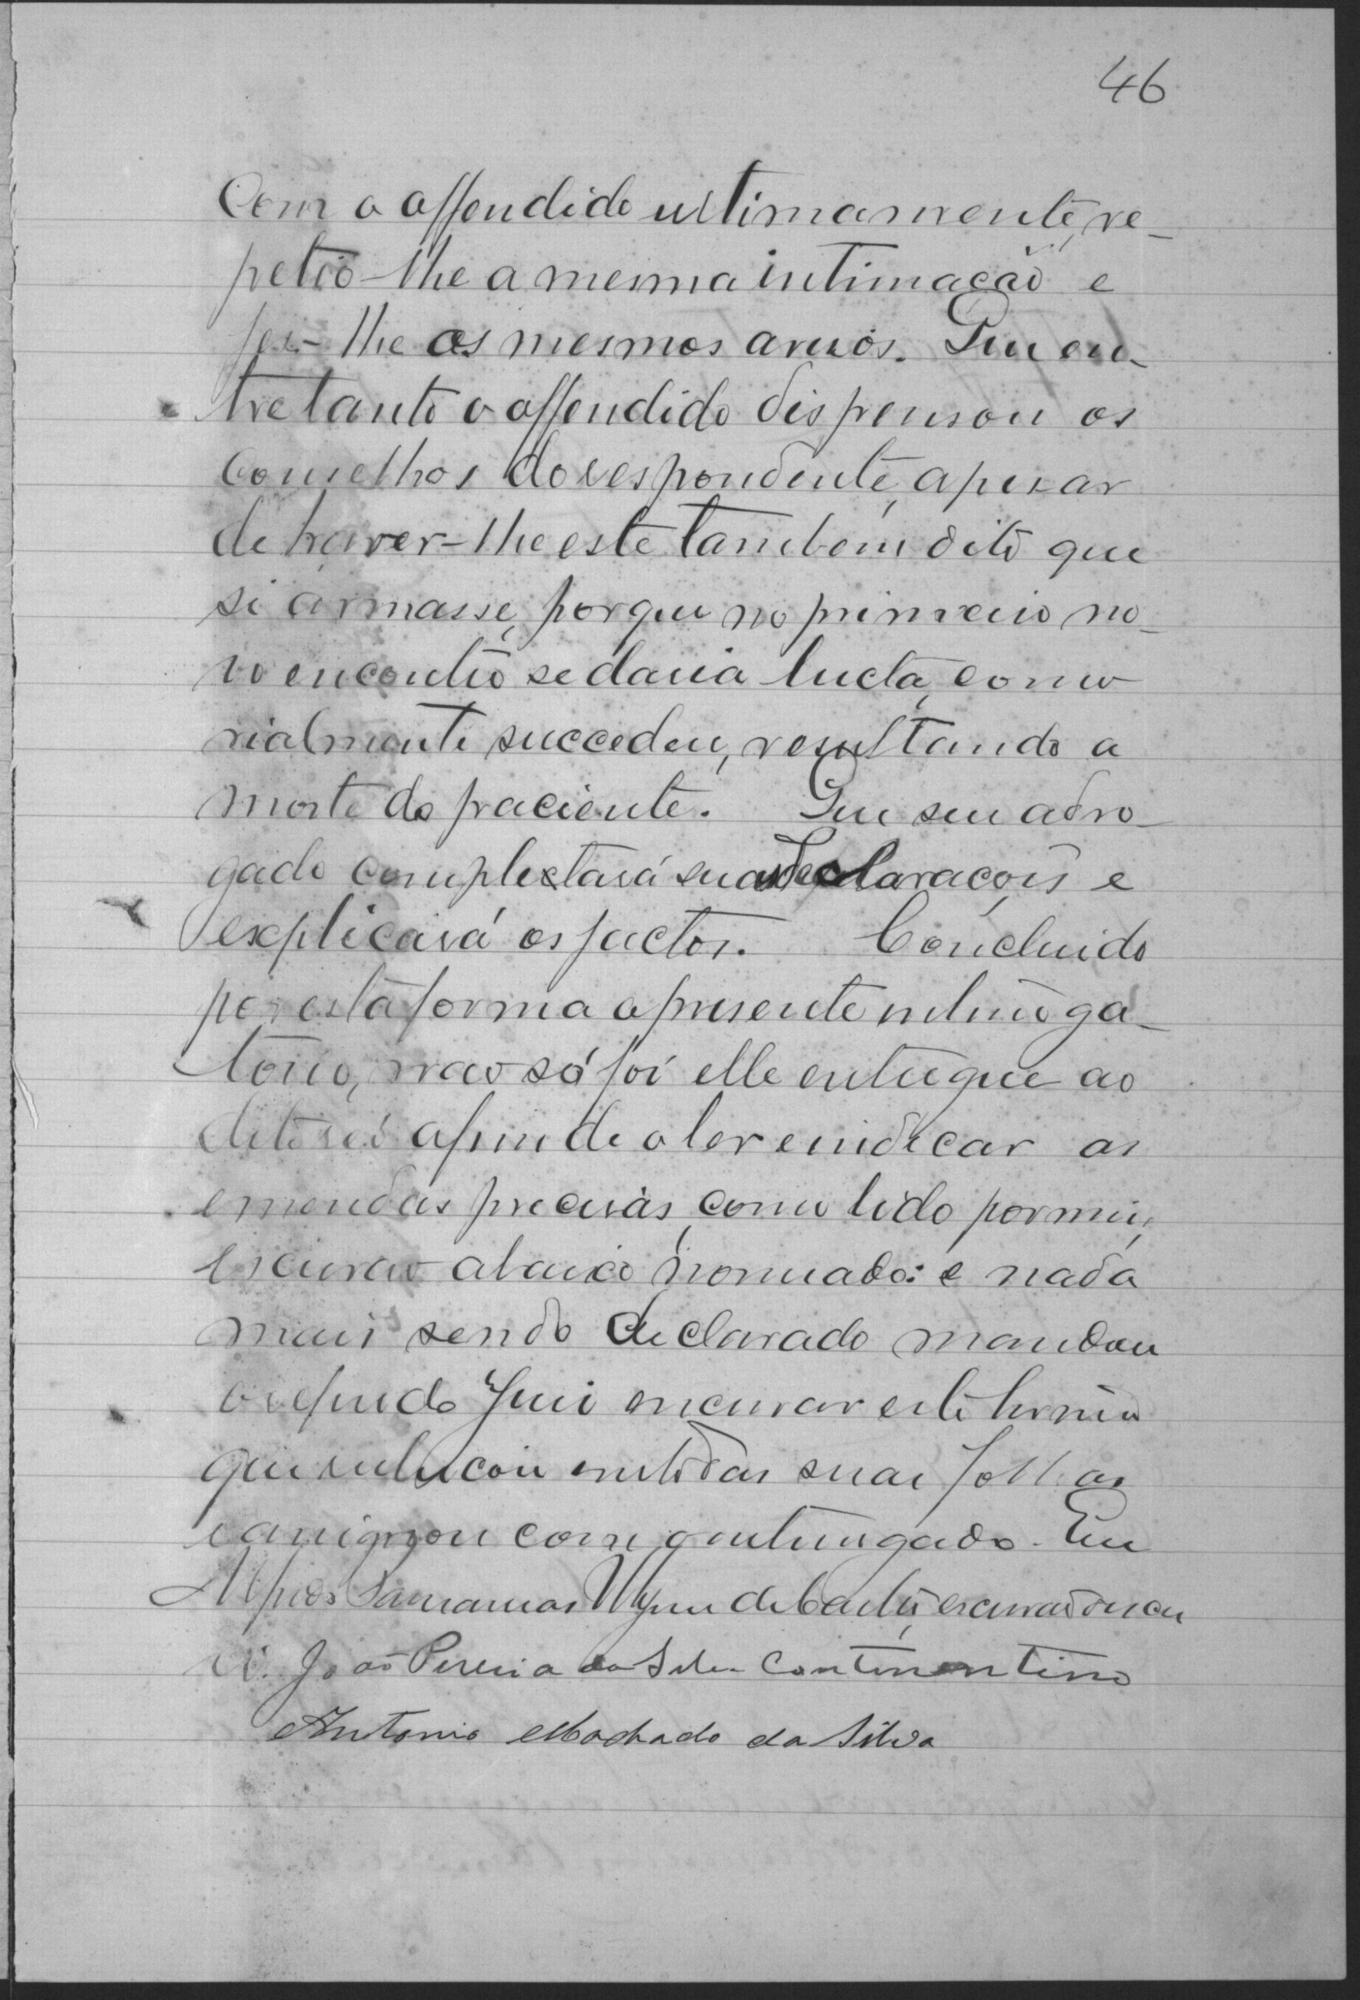 46
Com o offendido ultimamente, re-
petio-lhe a mesma intimação e
fez-lhe os mesmos avisos. Que en-
tretanto o offendido dispensou os
conselhos do respondente, apezar
de haver-lhe este tambem dito que
si armasse, porque no primeiro no-
vo encontro se daria lucta, como
rialmente succedeu, resultando a
morte do paciente. Que seu advo-
gado completará suas declarações e
explicará os factos. Concluido
por esta forma o presente interroga-
torio, não só foi elle entregue ao
dito réo afim de o ler e indicar as
emendas precisas, como lido por mim,
escrivão abaixo nomeado: e nada
mais sendo declarado mandou
o referido Juiz encerrar este termo
que rubricou em todas suas folhas
e assignou com o interrogado. Eu
Alfredo de escrivão escre
vi. João Pereira da Silva Continentino
Antonio Machado da Silva